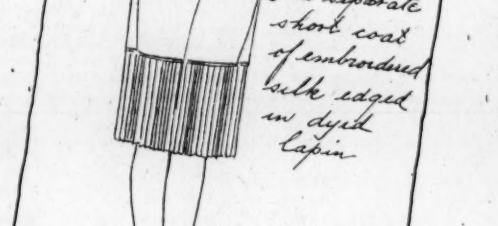 separate
short coat
of embroidered
silk edged
in dyed
lapin